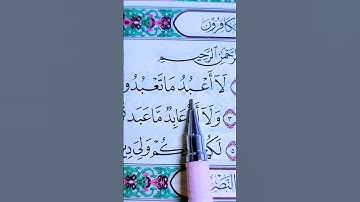 كافرون
الرحمن الرحيم
لَآ أَعْبُدُ مَا تَعْبُدُو
٣ وَلَآ أَ عَابِدٌ مَّا عَبَد
٥ لَكُ كُمْ وَلِيَ دِي
النَّصْر